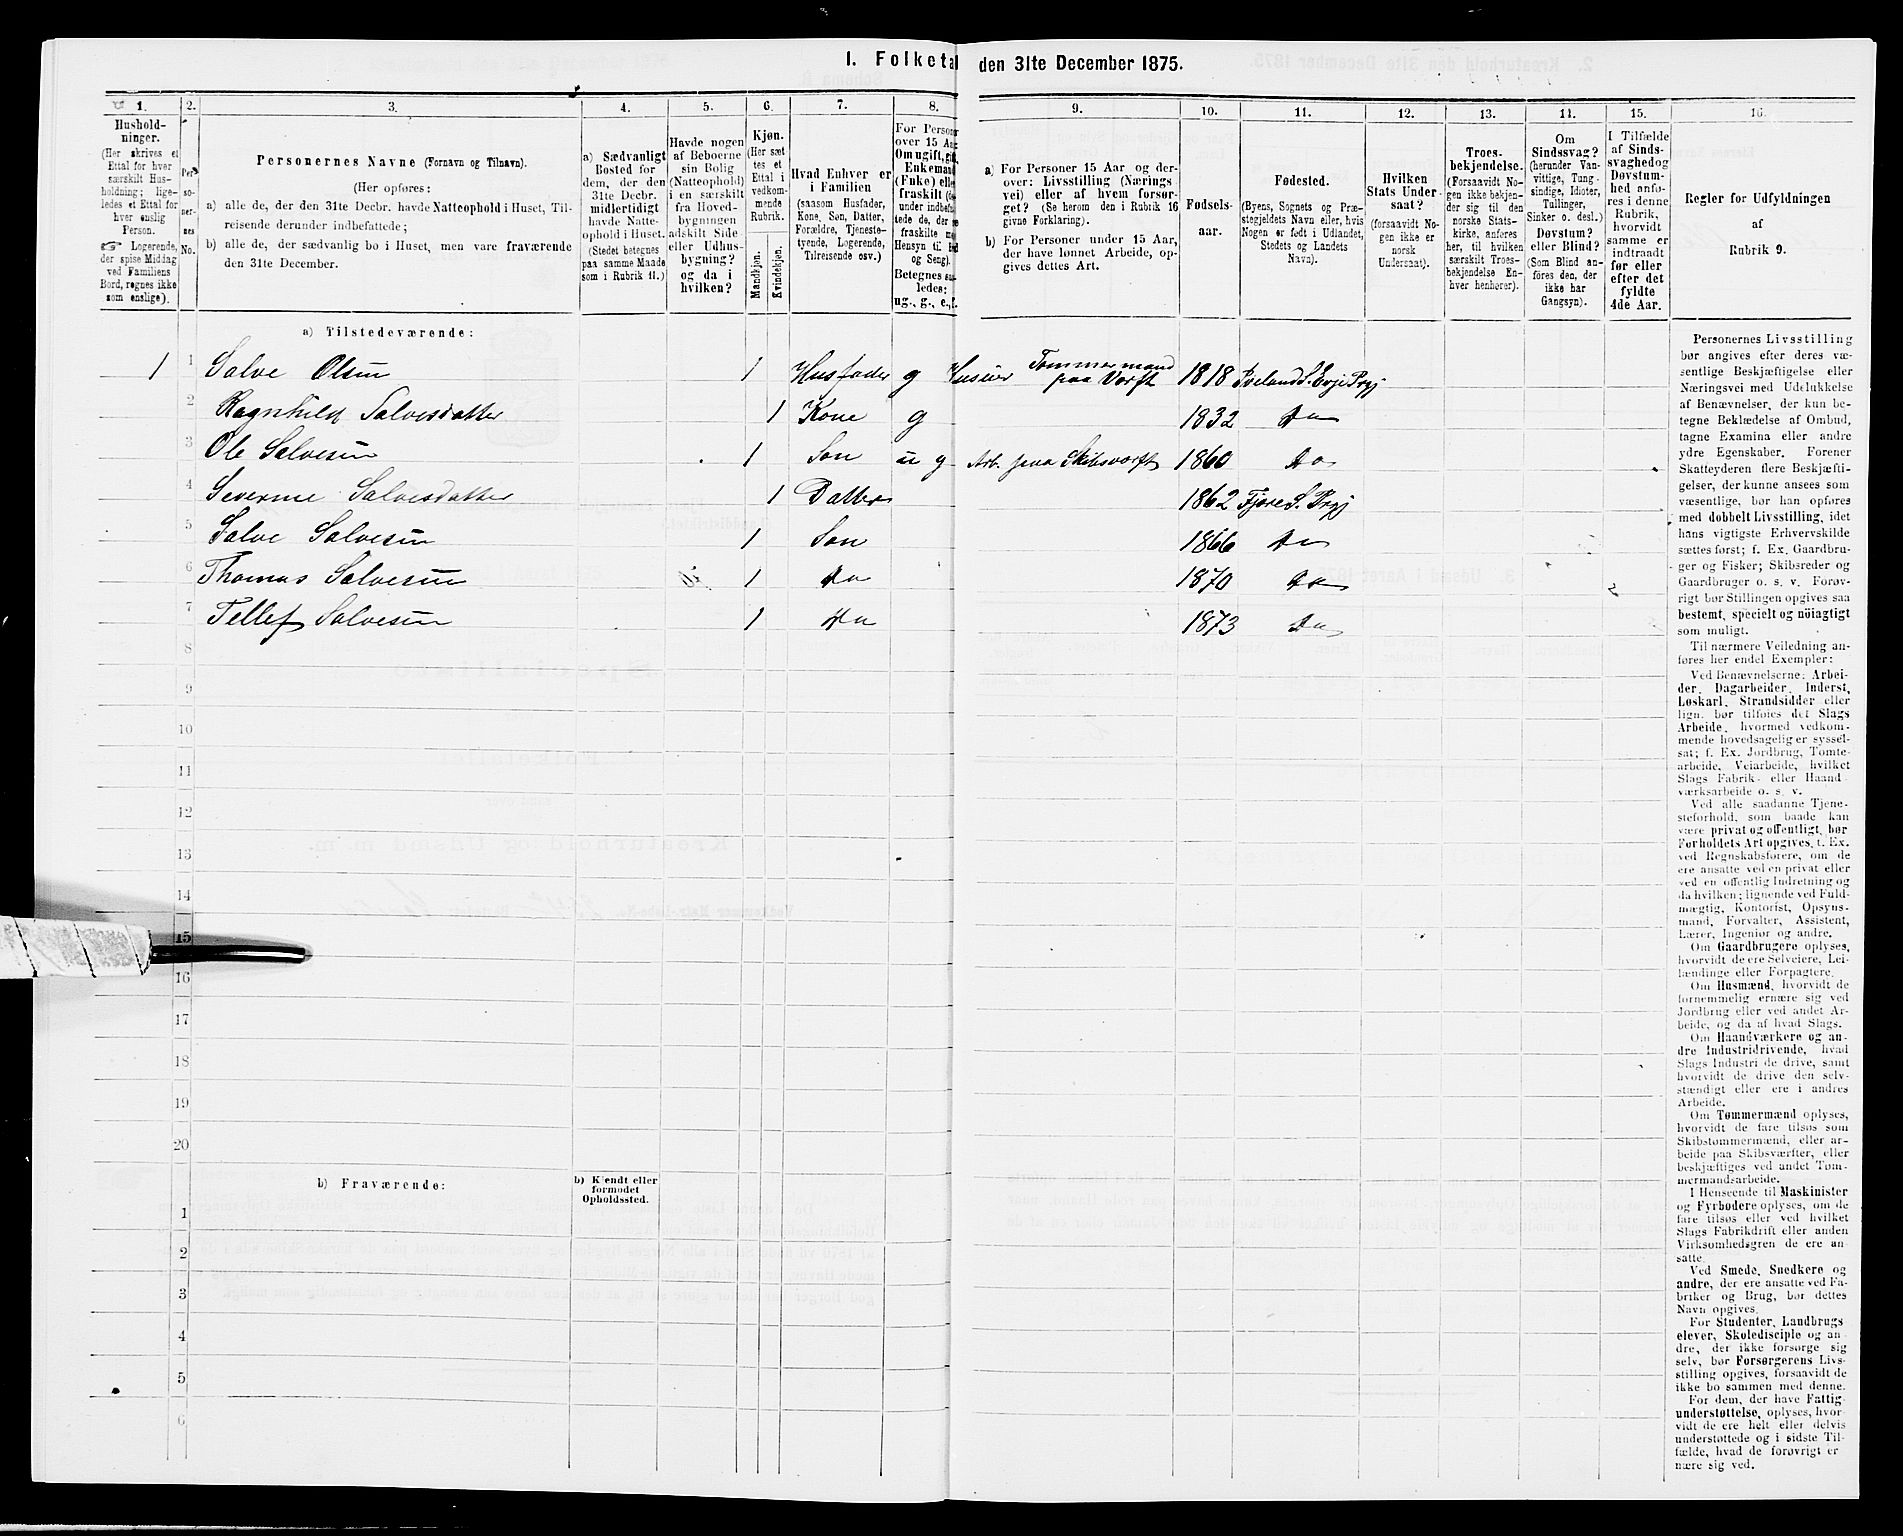 1. Folketal den 31te December 1875.
1. 2. 3. 4. 5. 6. 7. 8. 9. 10. 11. 12. 13. 14. 15. 16.
Hushold-
ninger.
(Her skrives et
Ettal for hver
særskilt Hus-
holdning; lige-
ledes et Ettal for
hver enslig
Person.
☞ Logerende,
der spise Middag
ved Familiens
Bord, regnes ikke
som enslige).
Per-
so-
ner-
nes
No.
Personernes Navne (Fornavn og Tilnavn).
(Her opføres:
a) alle de, der den 31te Decbr. havde Natteophold i Huset, Til-
reisende derunder indbefattede;
b) alle de, der sædvanlig bo i Huset, men vare fraværende
den 31te December.
a) Sædvanligt
Bosted for
dem, der den
31te Decbr.
midlertidigt
havde Natte-
ophold i Huset.
(Stedet betegnes
paa samme Maade
som i Rubrik 11.)
Havde nogen
af Beboerne
sin Bolig
(Natteophold)
i en særskilt
fra Hoved-
bygningen
adskilt Side
eller Udhus-
bygning?
og da i
hvilken?
Kjøn.
(Her sæt-
tes et
Ettal i
vedkom-
mende
Rubrik.
Mandkjøn.
Kvindekjøn.
Hvad Enhver er
i Familien
(saasom Husfader,
Kone, Søn, Datter,
Forældre, Tjeneste-
tyende, Logerende,
Tilreisende osv.)
For Personer
over 15 Aar
Om ugift, gift,
Enkemand
(Enke) eller
fraskilt
under indbefat-
tede de, der
fraskilte
Hensyn til Bord
og Seng).
Betegnes saa-
ledes:
ug., g., e., f.
a) For Personer 15 Aar og der-
over: Livsstilling (Nærings
vei) eller af hvem forsør-
get? (Se herom den i Rubrik 16
givne Forklaring).
b) For Personer under 15 Aar,
der have lønnet Arbeide, op-
gives dettes Art.
Fødsels-
aar.
Fødested.
(Byens, Sognets og Præ-
stegjeldets Navn eller, hvis
Nogen er født i Udlandet,
Stedets og Landets
Navn).
Hvilken
Stats Under-
saat?
(forsaavidt No-
gen ikke er
norsk
Undersaat).
Troes-
bekjendelse.
(Forsaavidt No-
gen ikke bekjen-
der sig til den
norske Stats-
kirke, anføres
her, til hvilken
særskilt Troes-
bekjendelse En-
hver henhører).
Om
Sindssvag?
(herunder Van-
vittige, Tung-
sindige, Idioter,
Tullinger,
Sinker o. desl.)
Døvstum?
eller Blind?
(Som Blind an-
føres den, der
ikke har
Gangsyn).
I Tilfælde
af Sinds-
svaghedog
Døvstum-
hed anfø-
res i denne
Rubrik,
hvorvidt
samme er
indtraadt
før eller
efter det
fyldte
4de Aar.
Regler for Udfyldningen
af
Rubrik 9.
a) Tilstedeværende:
1 1 Salve Olsen 1 Husfader g Huseier Tømmermand paa Værft 1818 Iveland S. Evje Prgj
2 Ragnhild Salvesdatter 1 Kone g 1832 Do
3 Ole Salvesen 1 Søn ug Arb. paa Skibsværft 1860 Do
4 Severine Salvesdatter 1 Datter 1862 Fjære S. Prgj
5 Salve Salvesen 1 Søn 1866 Do
6 Thomas Salvesen 1 Do 1870 Do
7 Tellef Salvesen 1 Do 1873 Do
8
9
10
11
12
13
14
15
16
17
18
19
20
b) Fraværende:
b) Kjendt eller
formodet
Opholdssted.
1
2
3
4
5
6
Personernes Livsstilling
bør angives efter deres væ-
sentlige Beskjæftigelse eller
Næringsvei med Udelukkelse
af Benævnelser, der kun be-
tegne Beklædelse af Ombud,
tagne Examina eller andre
ydre Egenskaber. Forener
Skatteyderen flere Beskjæfti-
gelser, der kunne ansees som
væsentlige, bør han opføres
med dobbelt Livsstilling, idet
hans vigtigste Erhvervskilde
sættes først; f. Ex. Gaardbru-
ger og Fisker; Skibsreder og
Gaardbruger o. s. v. Forøv-
rigt bør Stillingen opgives saa
bestemt, specielt og nöiagtigt
som muligt.
Til nærmere Veiledning an-
føres her endel Exempler:
Ved Benævnelserne: Arbei-
der, Dagarbeider, Inderst,
Løskarl, Strandsidder eller
lign. bør tilføies det Slags
Arbeide, hvormed vedkom-
mende hovedsagelig er syssel-
sat; f. Ex. Jordbrug, Tomte-
arbeide, Veiarbeide, hvilket
Slags Fabrik- eller Haand-
værksarbeide o. s. v.
Ved alle saadanne Tjene-
steforhold, som baade kan
være privat og offentligt, bør
Forholdets Art opgives, f. Ex.
ved Regnskabsførere, om de
ere ansatte ved en privat eller
ved en offentlig Indretning og
da hvilken; lignende ved Fuld-
mægtig, Kontorist, Opsyns-
mand, Forvalter, Assistent,
Lærer, Ingeniør og andre.
Om Gaardbrugere oplyses,
hvorvidt de ere Selveiere, Lei-
lændinge eller Forpagtere.
Om Husmænd, hvorvidt de
fornemmelig ernære sig ved
Jordbrug eller ved andet Ar-
beide, og da af hvad Slags.
Om Haandværkere og an-
dre Industridrivende, hvad
Slags Industri de drive, samt
hvorvidt de drive den selv-
stændigt eller ere i andres
Arbeide.
Om Tømmermænd oplyses,
hvorvidt de fare tilsøs som
Skibstømmermænd, eller ar-
beide paa Skibsværfter, eller
beskjæftiges ved andet Tøm-
mermandsarbeide.
I Henseende til Maskinister
og Fyrbødere oplyses, om de
fare tilsøs eller ved hvilket
Slags Fabrikdrift eller anden
Virksomhedsgren de ere an-
satte.
Ved Smede, Snedkere og
andre, der ere ansatte ved Fa-
briker og Brug, bør dettes
Navn opgives.
For Studenter, Landbrugs-
elever, Skoledisciple og an-
dre, der ikke forsørge sig
selv, bør Forsørgerens Livs-
stilling opgives, forsaavidt de
ikke bo sammen med denne.
For dem, der have Fattig-
understøttelse, oplyses, hvor-
vidt de ere helt eller delvis
understøttede og i sidste Til-
fælde, hvad de forøvrigt er
nære sig ved.